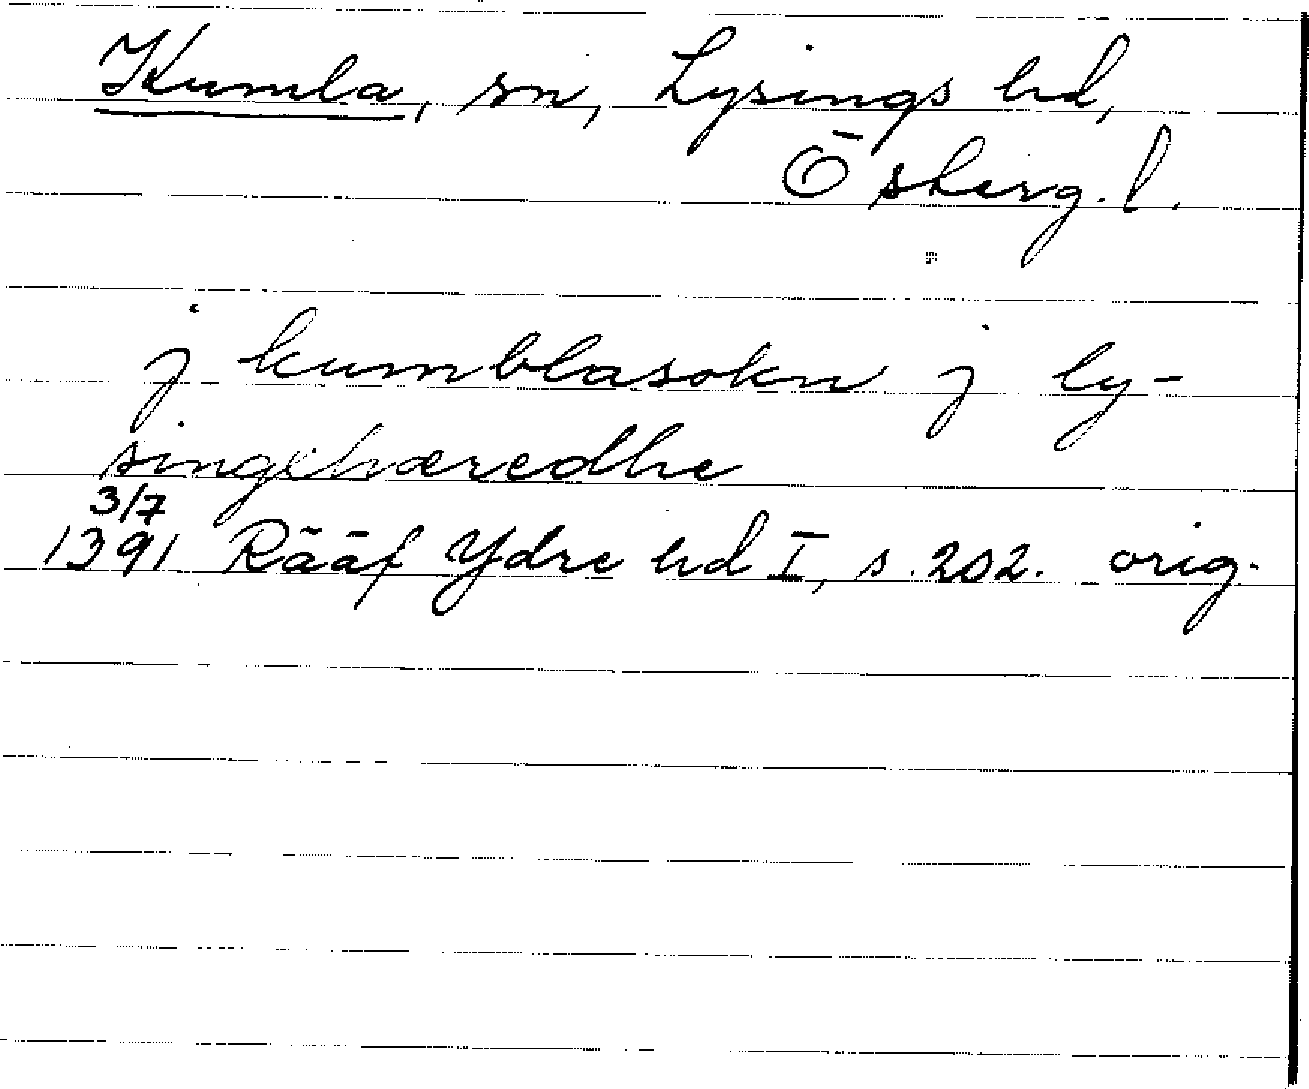 Kumla, sn, Lysings hd,
Österg. l.
j kumblasokn j ly-
singxhæredhe
3/7
1391 Rääf Ydre hd I, s. 202. orig.